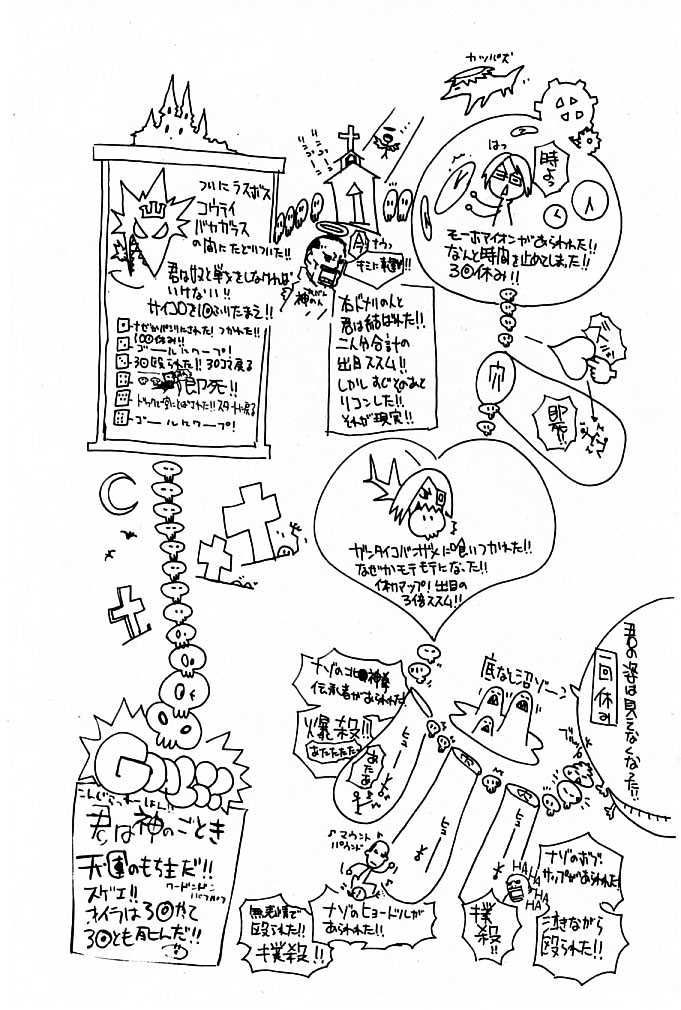 カッパズ
はっ
時よっ
モーホマイオンがあらわれた!!
なんと時間を止めてしまった!!
3回休み!!
即死!!
穴
ガンタイコバンザメに喰いつかれた!!
なぜかモテモテになった!!
体力マップ!出目の
3倍ススム!!
ついにラスボス
コウテイ
バヤカラス
の間にたどりついた!!
君は奴と戦をしなければ
いけない!!
サイコロを1回ふりたまえ!!
1回休み!!
ゴールにワープ!
3回殴られた!! 30コマ戻る
即死!!
スタートに戻る
ゴールにワープ!
リンゴーン
リンゴーン
神のん
右ドナリの人と
君は結ばれた!!
二人分合計の
出目ススム!!
しかしすぐそのあと
リコンした!!
それが現実!!
君の姿は見えなくなった!!
一回休み
底なし沼ゾーン
ナゾの北神拳
伝承者があらわれた!
爆殺!!
あたたたたた
あたあ
ヒューー
ヒューー
ヒューー
マウント
パウンド
ナゾのヒョードルが
あらわれた!!
無表情で
殴られた!!
撲殺!!
HAHA
HAHA
HA
ナゾのボブ
サップがあらわれた!
泣きながら
殴られた!!
撲殺!!
こんぐらっちれーしょん!!
君は神のごとき
天運のもち主だ!!
スゲエ!!
オイラは3回やて
3回とも死んだ!!